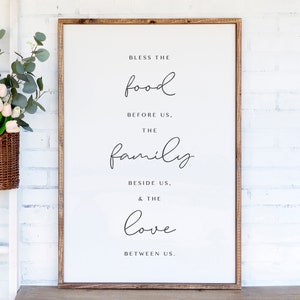 BLESS THE
food
BEFORE US,
THE
family
BESIDE US,
& THE
love
BETWEEN US.